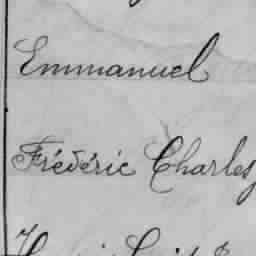 Emmanuel
Frédéric Charles